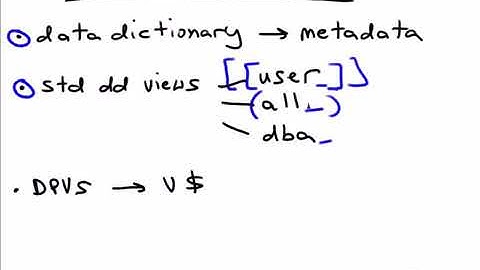 data dictionary → metadata
std dd views [[user_]]
(all_)
dba_
. DPVS → V$